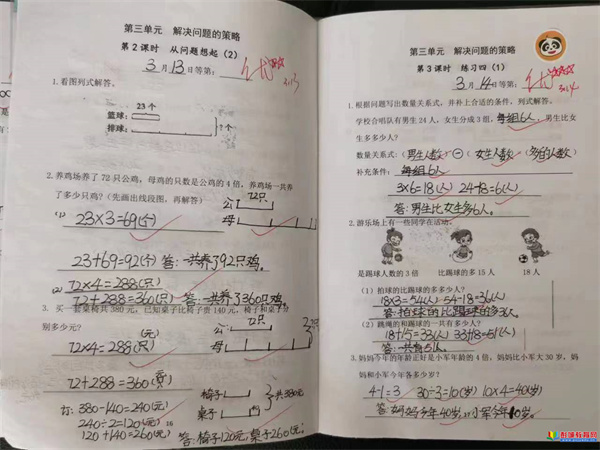 第三单元 解决问题的策略
第2课时 从问题想起（2）
3月13日等第：优
3.13
1.看图列式解答。
23个
篮球：
排球：
?个
2.养鸡场养了72只公鸡，母鸡的只数是公鸡的4倍，养鸡场一共养
了多少只鸡？（先画出线段图，再解答）
72只
公：
母：
(1)
23×3=69(个)
23+69=92(个) 答：一共养了92只鸡。
(2)
72×4=288(只)
72+288=360(只) 答：一共养了360只鸡。
3.买一套桌椅共380元，已知桌子比椅子贵140元，椅子和桌子分
别多少元？
72只
72×4=288(只)
72+288=360
椅子
桌子
共380元
380-140=240(元)
240÷2=120(元)
120+140=260(元) 答：椅子120元,桌子260元。
第三单元 解决问题的策略
第3课时 练习四（1）
3月14日等第：优
3.14
1.根据问题写出数量关系式，并补上合适的条件，列式解答。
学校合唱队有男生24人，女生分成3组，每组6人。男生比女
生多多少人？
数量关系式：（男生人数）－（女生人数）（多的人数）
补充条件：每组6人
3×6=18(人) 24-18=6(人)
答：男生比女生多6人。
2.游乐场上有一些同学在活动。
是踢球人数的3倍 比踢球的多15人 18人
（1）拍球的比踢球的多多少人？
18×3=54(人) 54-18=36(人)
答：拍球的比踢球的多36人。
（2）跳绳的和踢球的一共有多少人？
18+15=33(人) 33+18=51(人)
答：一共有51人
3.妈妈今年的年龄正好是小军年龄的4倍，妈妈比小军大30岁，妈
妈和小军今年各多少岁？
4-1=3 30÷3=10(岁) 10×4=40(岁)
答：妈妈今年40岁，小军今年10岁。